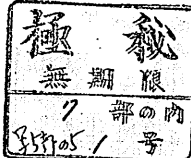 極秘
無期限
7部の内
1号